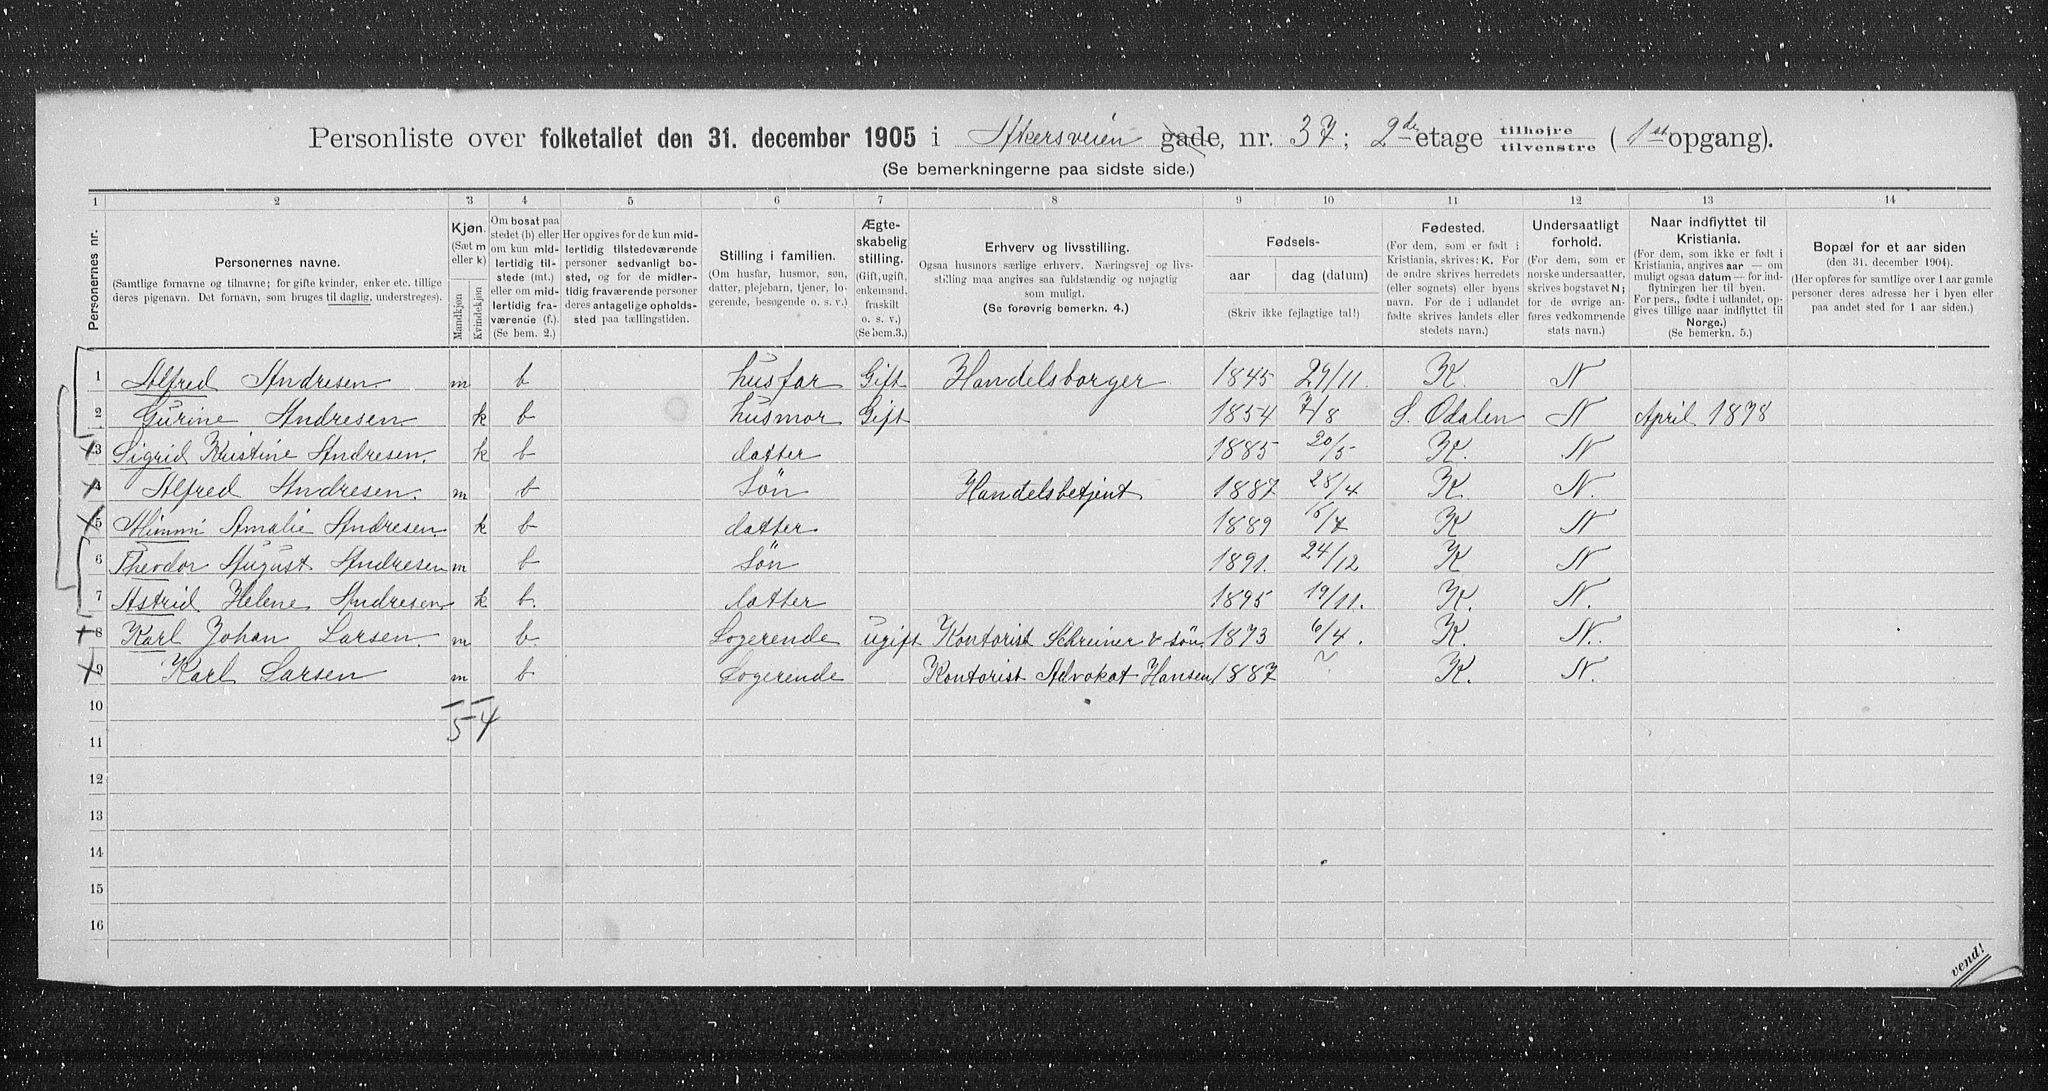 Personliste over folketallet den 31. december 1905 i Akersveien gade, nr. 37; 2de etage tilhøjre tilvenstre (1ste opgang).
(Se bemerkningerne paa sidste side.)
1 2 3 4 5 6 7 8 9 10 11 12 13 14
Personernes nr.
Personernes navne.
(Samtlige fornavne og tilnavne; for gifte kvinder, enker etc. tillige
deres pigenavn. Det fornavn, som bruges til daglig, understreges).
Kjøn.
(Sæt m
eller k)
Mandkjøn
Kvindekjøn
Om bosat paa
stedet (b) eller
om kun mid-
lertidig til-
stede (mt.)
eller om mid-
lertidig fra-
værende (f.).
(Se bem. 2.)
Her opgives for de kun mid-
lertidig tilstedeværende
personer sedvanligt bo-
sted, og for de midler-
tidig fraværende personer
deres antagelige opholds-
sted paa tællingstiden.
Stilling i familien.
(Om husfar, husmor, søn,
datter, plejebarn, tjener, lo-
gerende, besøgende o. s. v.)
Ægte-
skabelig
stilling.
(Gift, ugift,
enkenand,
fraskilt
o. s. v.)
(Se bem.3.)
Erhverv og livsstilling.
Ogsaa husmors særlige erhverv. Næringsvej og livs-
stilling maa angives saa fuldstændig og nøjagtig
som muligt.
(Se forøvrig bemerkn. 4.)
Fødsels-
aar dag (datum)
(Skriv ikke fejlagtige tal!)
Fødested.
(For dem, som er født i
Kristiania, skrives: K. For
de øndre skrives herredets
(eller sognets) eller byens
navn. For de i udlandet
fødte skrives landets eller
stedets navn.)
Undersaatligt
forhold.
(For dem, som er
norske undersaatter,
skrives bogstavet N;
for de øvrige an-
føres vedkommende
stats navn.)
Naar indflyttet til
Kristiania.
(For dem, som ikke er født i
Kristiania, angives aar — om
muligt ogsaa datum — for ind-
flytningen her til byen.
For pers., fødte i udlandet, op-
gives tillige naar indflyttet til
Norge.)
(Se bemerkn. 5.)
Bopæl for et aar siden
(den 31. december 1904).
(Her opføres for samtlige over 1 aar gamle
personer deres adresse her i byen eller
paa andet sted for 1 aar siden.)
1 Alfred Andresen m b husfar Gift Handelsborger 1845 29/11. K. N
2 Gurine Andresen k b husmor Gift 1854 7/8 S. Odalen N April 1878
3 Sigrid Kristine Andresen. k b datter 1885 20/5 K. N
4 Alfred Andresen. m b Søn Handelsbetjent 1887 28/4 K. N.
5 Mimmi Amalie Andresen. k b datter 1889 K N
6 Theodor August Andresen m b Søn 1891. 24/12 K N
7 Astrid Helene Andresen k b. datter 1895 19/11. K. N.
8 Karl Johan Larsen. m b. Logerende ugift Kontorist Schreiner & Søn. 1873 6/4. K. N.
9 Karl Larsen m b Logerende Kontorist Advokat Hansen 1887 ? K. N.
10 5 4
11
12
13
14
15
16
vend!